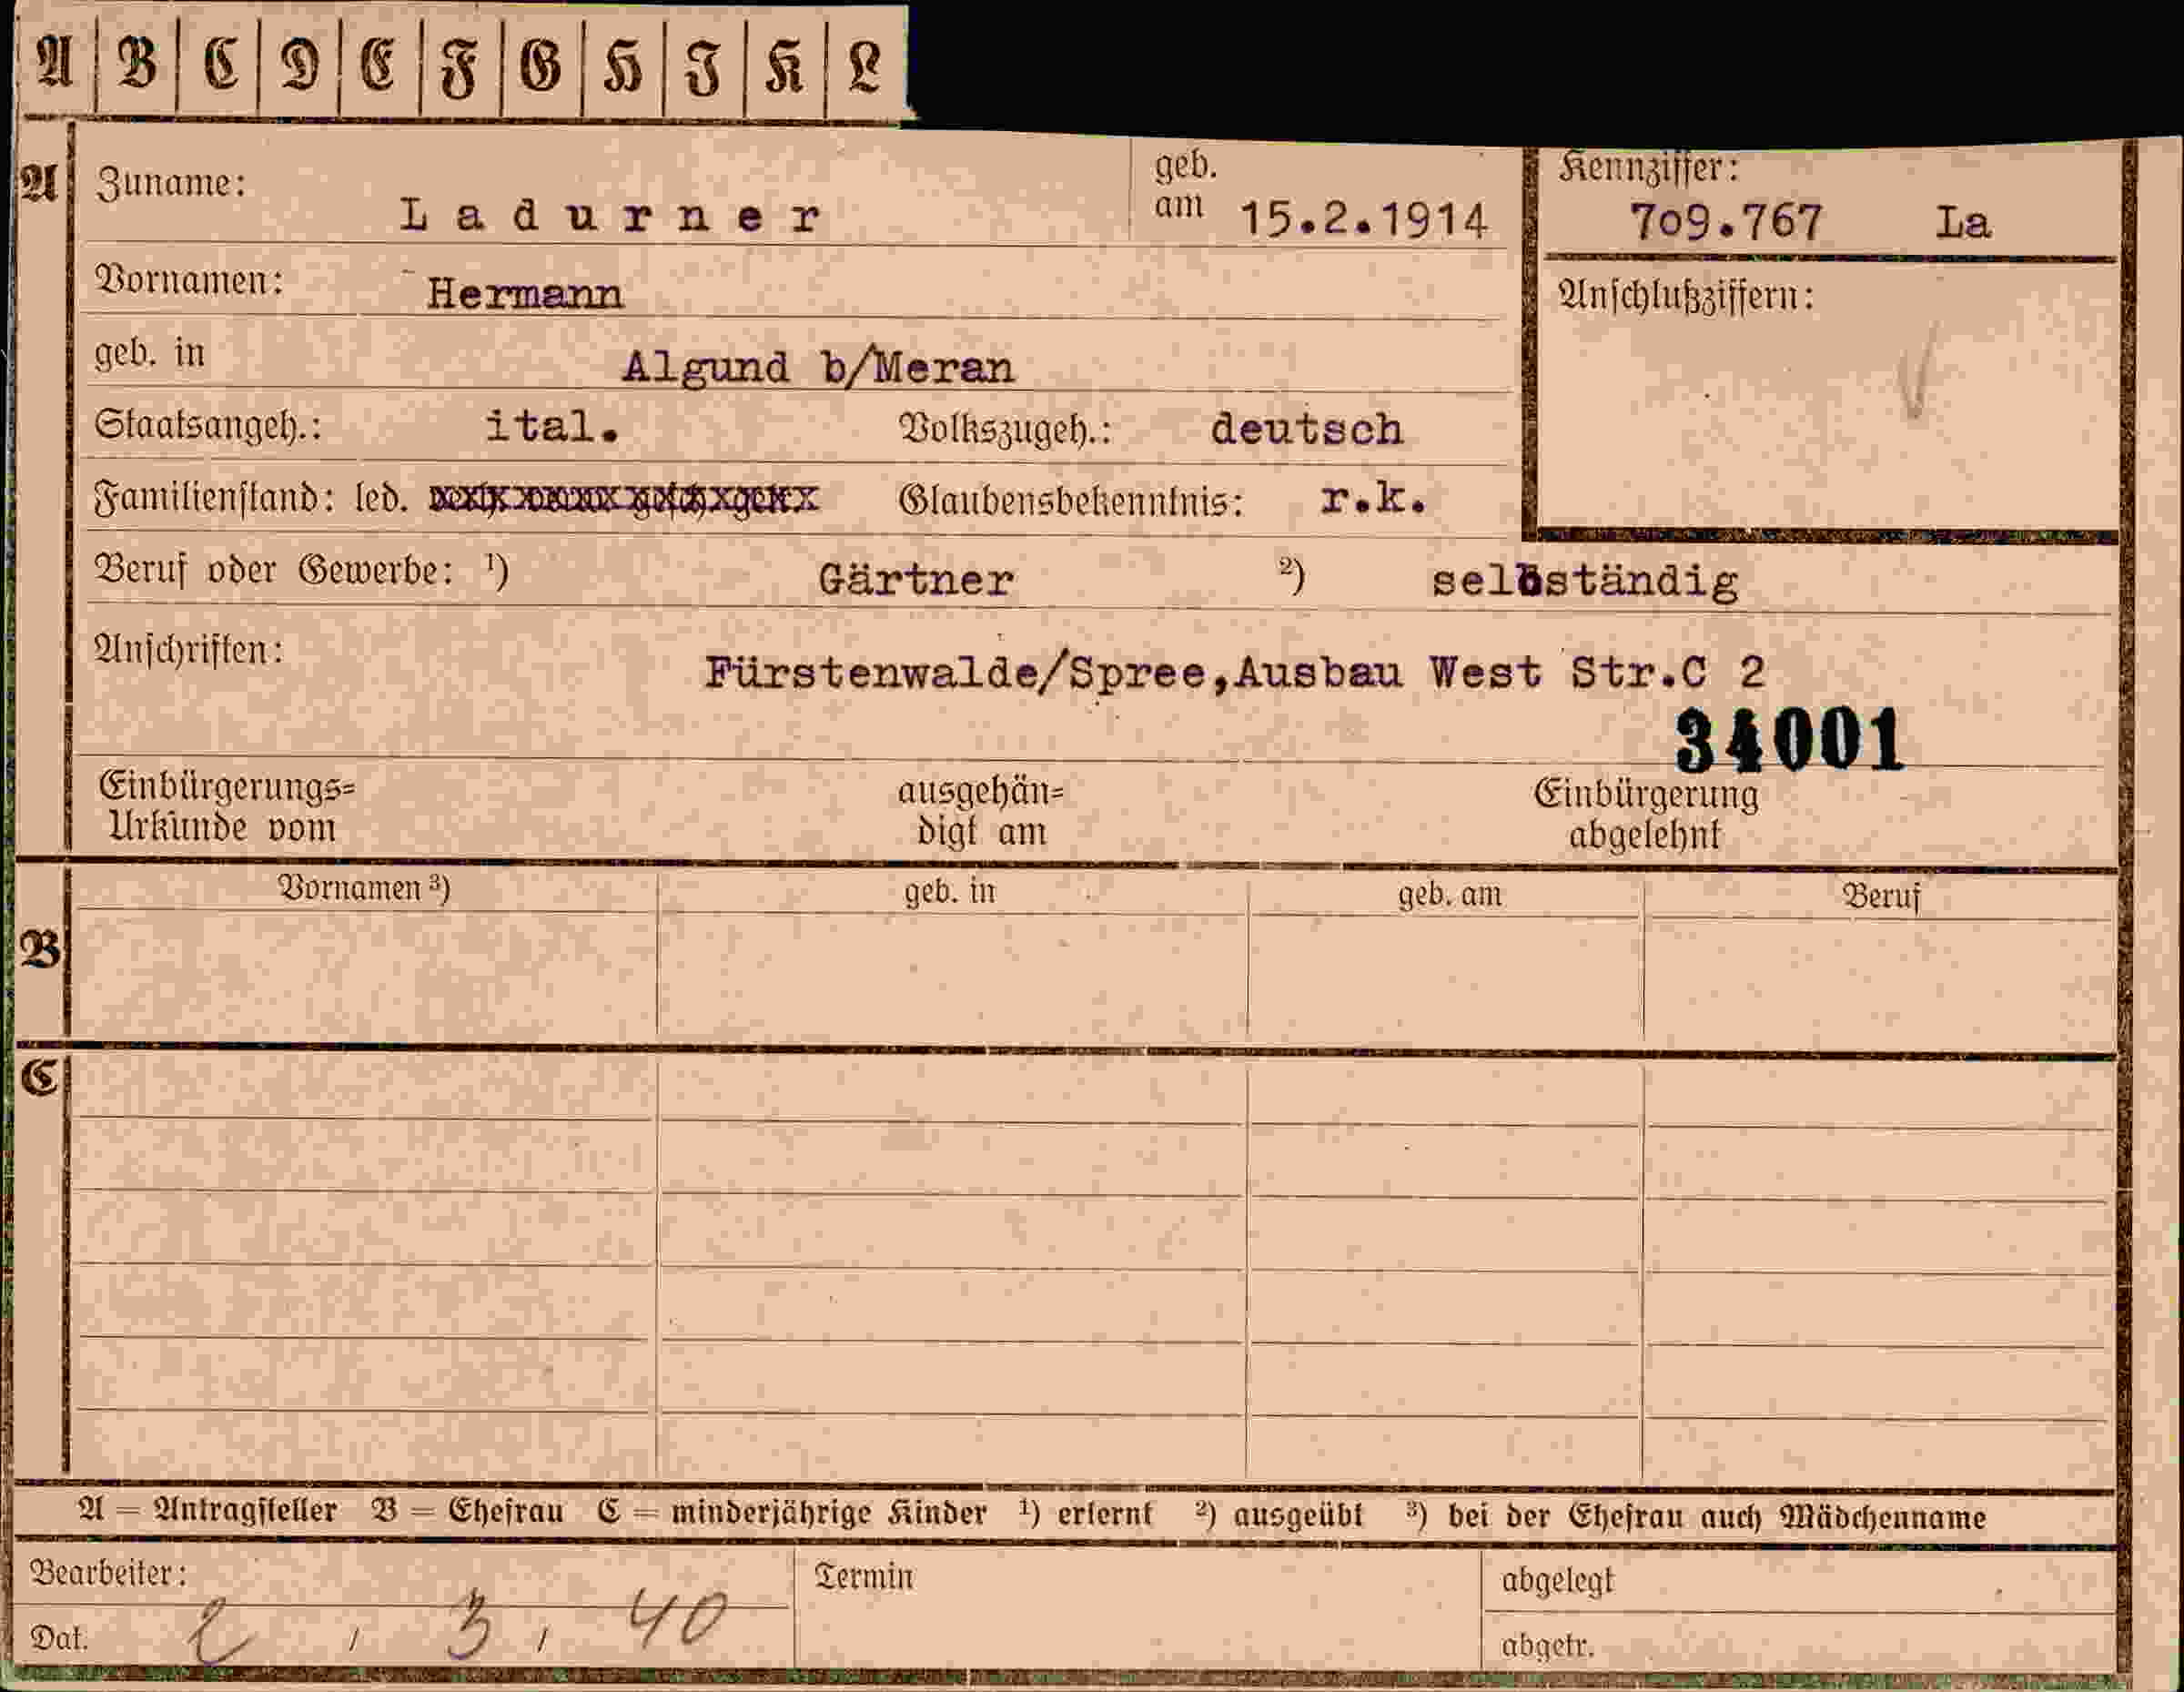 A B C D E F G H I K L
A Zuname: Ladurner geb. am 15.2.1914 Kennziffer: 709.767 La
Vornamen: Hermann Anschlußziffern:
geb. in Algund b/Meran
Staatsangeh.: ital. Volkszugeh.: deutsch
Familienstand: led. Glaubensbekenntnis: r.k.
Beruf oder Gewerbe: 1) Gärtner 2) selbständig
Anschriften: Fürstenwalde/Spree,Ausbau West Str.C 2
34001
Einbürgerungs= ausgehän= Einbürgerung
Urkunde vom digt am abgelehnt
Vornamen 3) geb. in geb. am Beruf
B
C
A = Antragsteller B = Ehefrau C = minderjährige Kinder 1) erlernt 2) ausgeübt 3) bei der Ehefrau auch Mädchenname
Bearbeiter: Termin abgelegt
Dat. 2 / 3 / 40 abgetr.